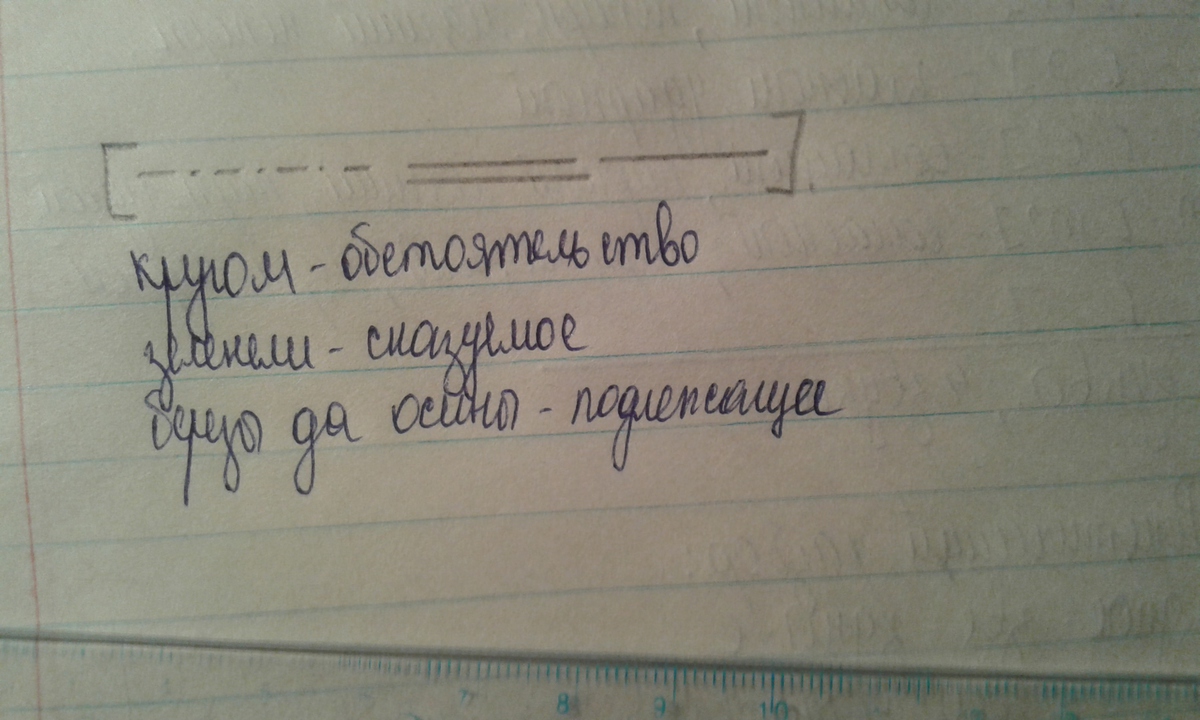 кругом - обстоятельство
зеленели - сказуемое
березы да осины - подлежащее
7 8 9 10